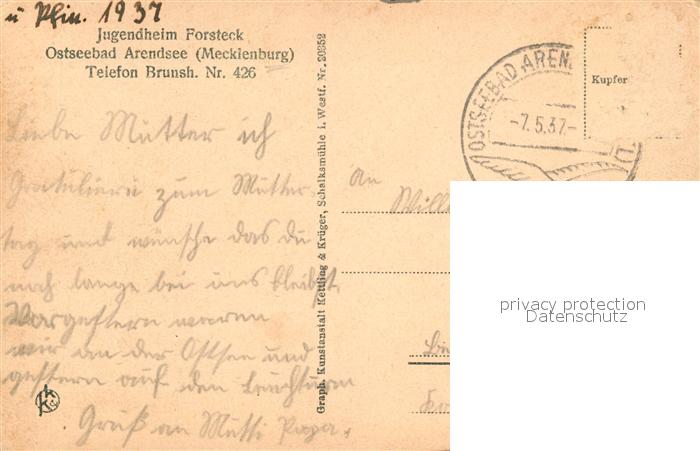 1937
Jugendheim Forsteck
Ostseebad Arendsee (Mecklenburg)
Telefon Brunsh. Nr. 426
Liebe Mutter ich
Gratuliere zum Mutter
tag und wünsche das du
noch lange bei uns bleibst.
Vorgestern waren
wir an der Ostsee und
gestern auf den Leuchturm
Gruß an Mutti Papa.
Graph. Kunstanstalt Kettling & Krüger, Schalksmühle i. Westf. Nr. 20352
OSTSEEBAD AREND
-7.5.37.-
Kupfer
An
privacy protection
Datenschutz